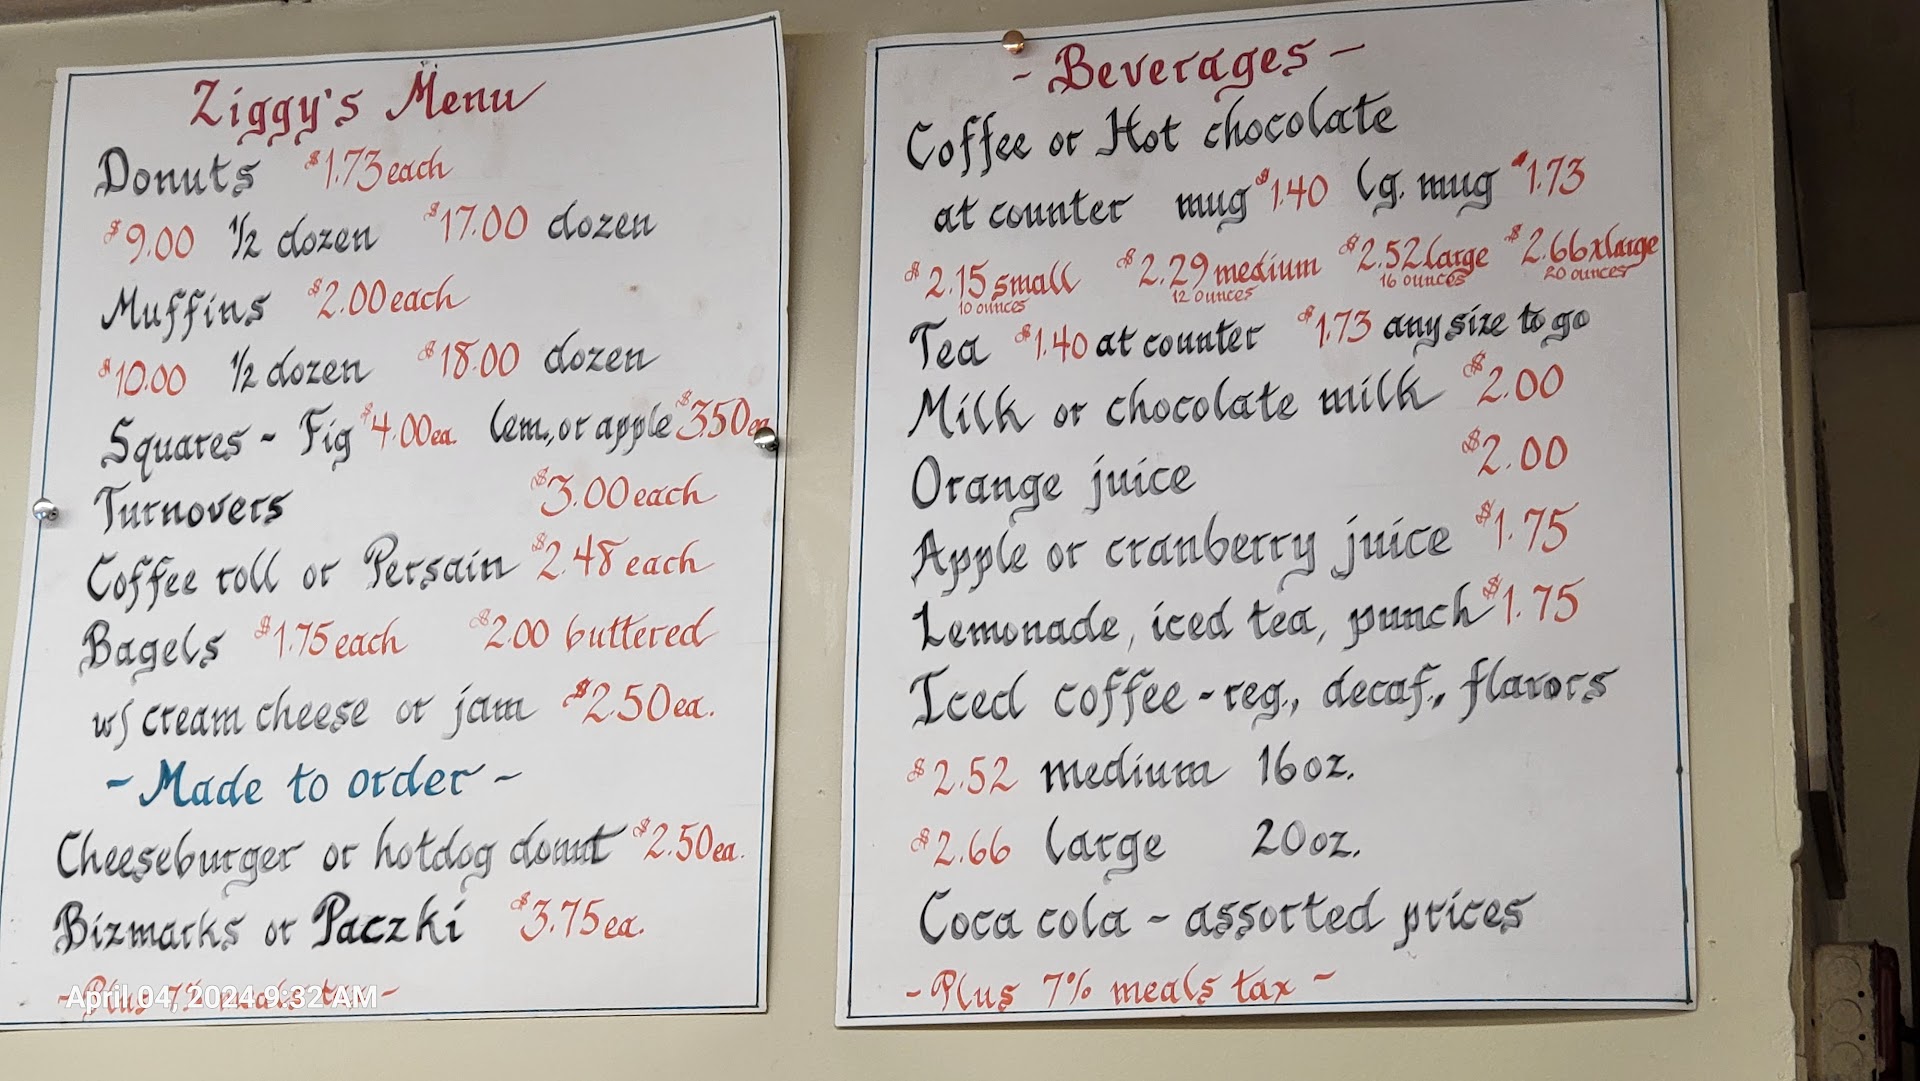 Ziggy's Menu
Donuts $1.73 each
$9.00 1/2 dozen $17.00 dozen
Muffins $2.00 each
$10.00 1/2 dozen $18.00 dozen
Squares - Fig $4.00 ea. lem., or apple $3.50 ea
Turnovers $3.00 each
Coffee roll or Persain $2.48 each
Bagels $1.75 each $2.00 buttered
w/ cream cheese or jam $2.50 ea.
- Made to order -
Cheeseburger or hotdog donut $2.50 ea.
Bizmarks or Paczki $3.75 ea.
- Plus 7% meals tax -
April 04, 2024 9:32 AM
- Beverages -
Coffee or Hot chocolate
at counter mug $1.40 lg. mug $1.73
$2.15 small $2.29 medium $2.52 large $2.66 xlarge
10 ounces 12 ounces 16 ounces 20 ounces
Tea $1.40 at counter $1.73 any size to go
Milk or chocolate milk $2.00
Orange juice $2.00
Apple or cranberry juice $1.75
Lemonade, iced tea, punch $1.75
Iced coffee - reg., decaf., flavors
$2.52 medium 16oz.
$2.66 large 20oz.
Coca cola - assorted prices
- Plus 7% meals tax -